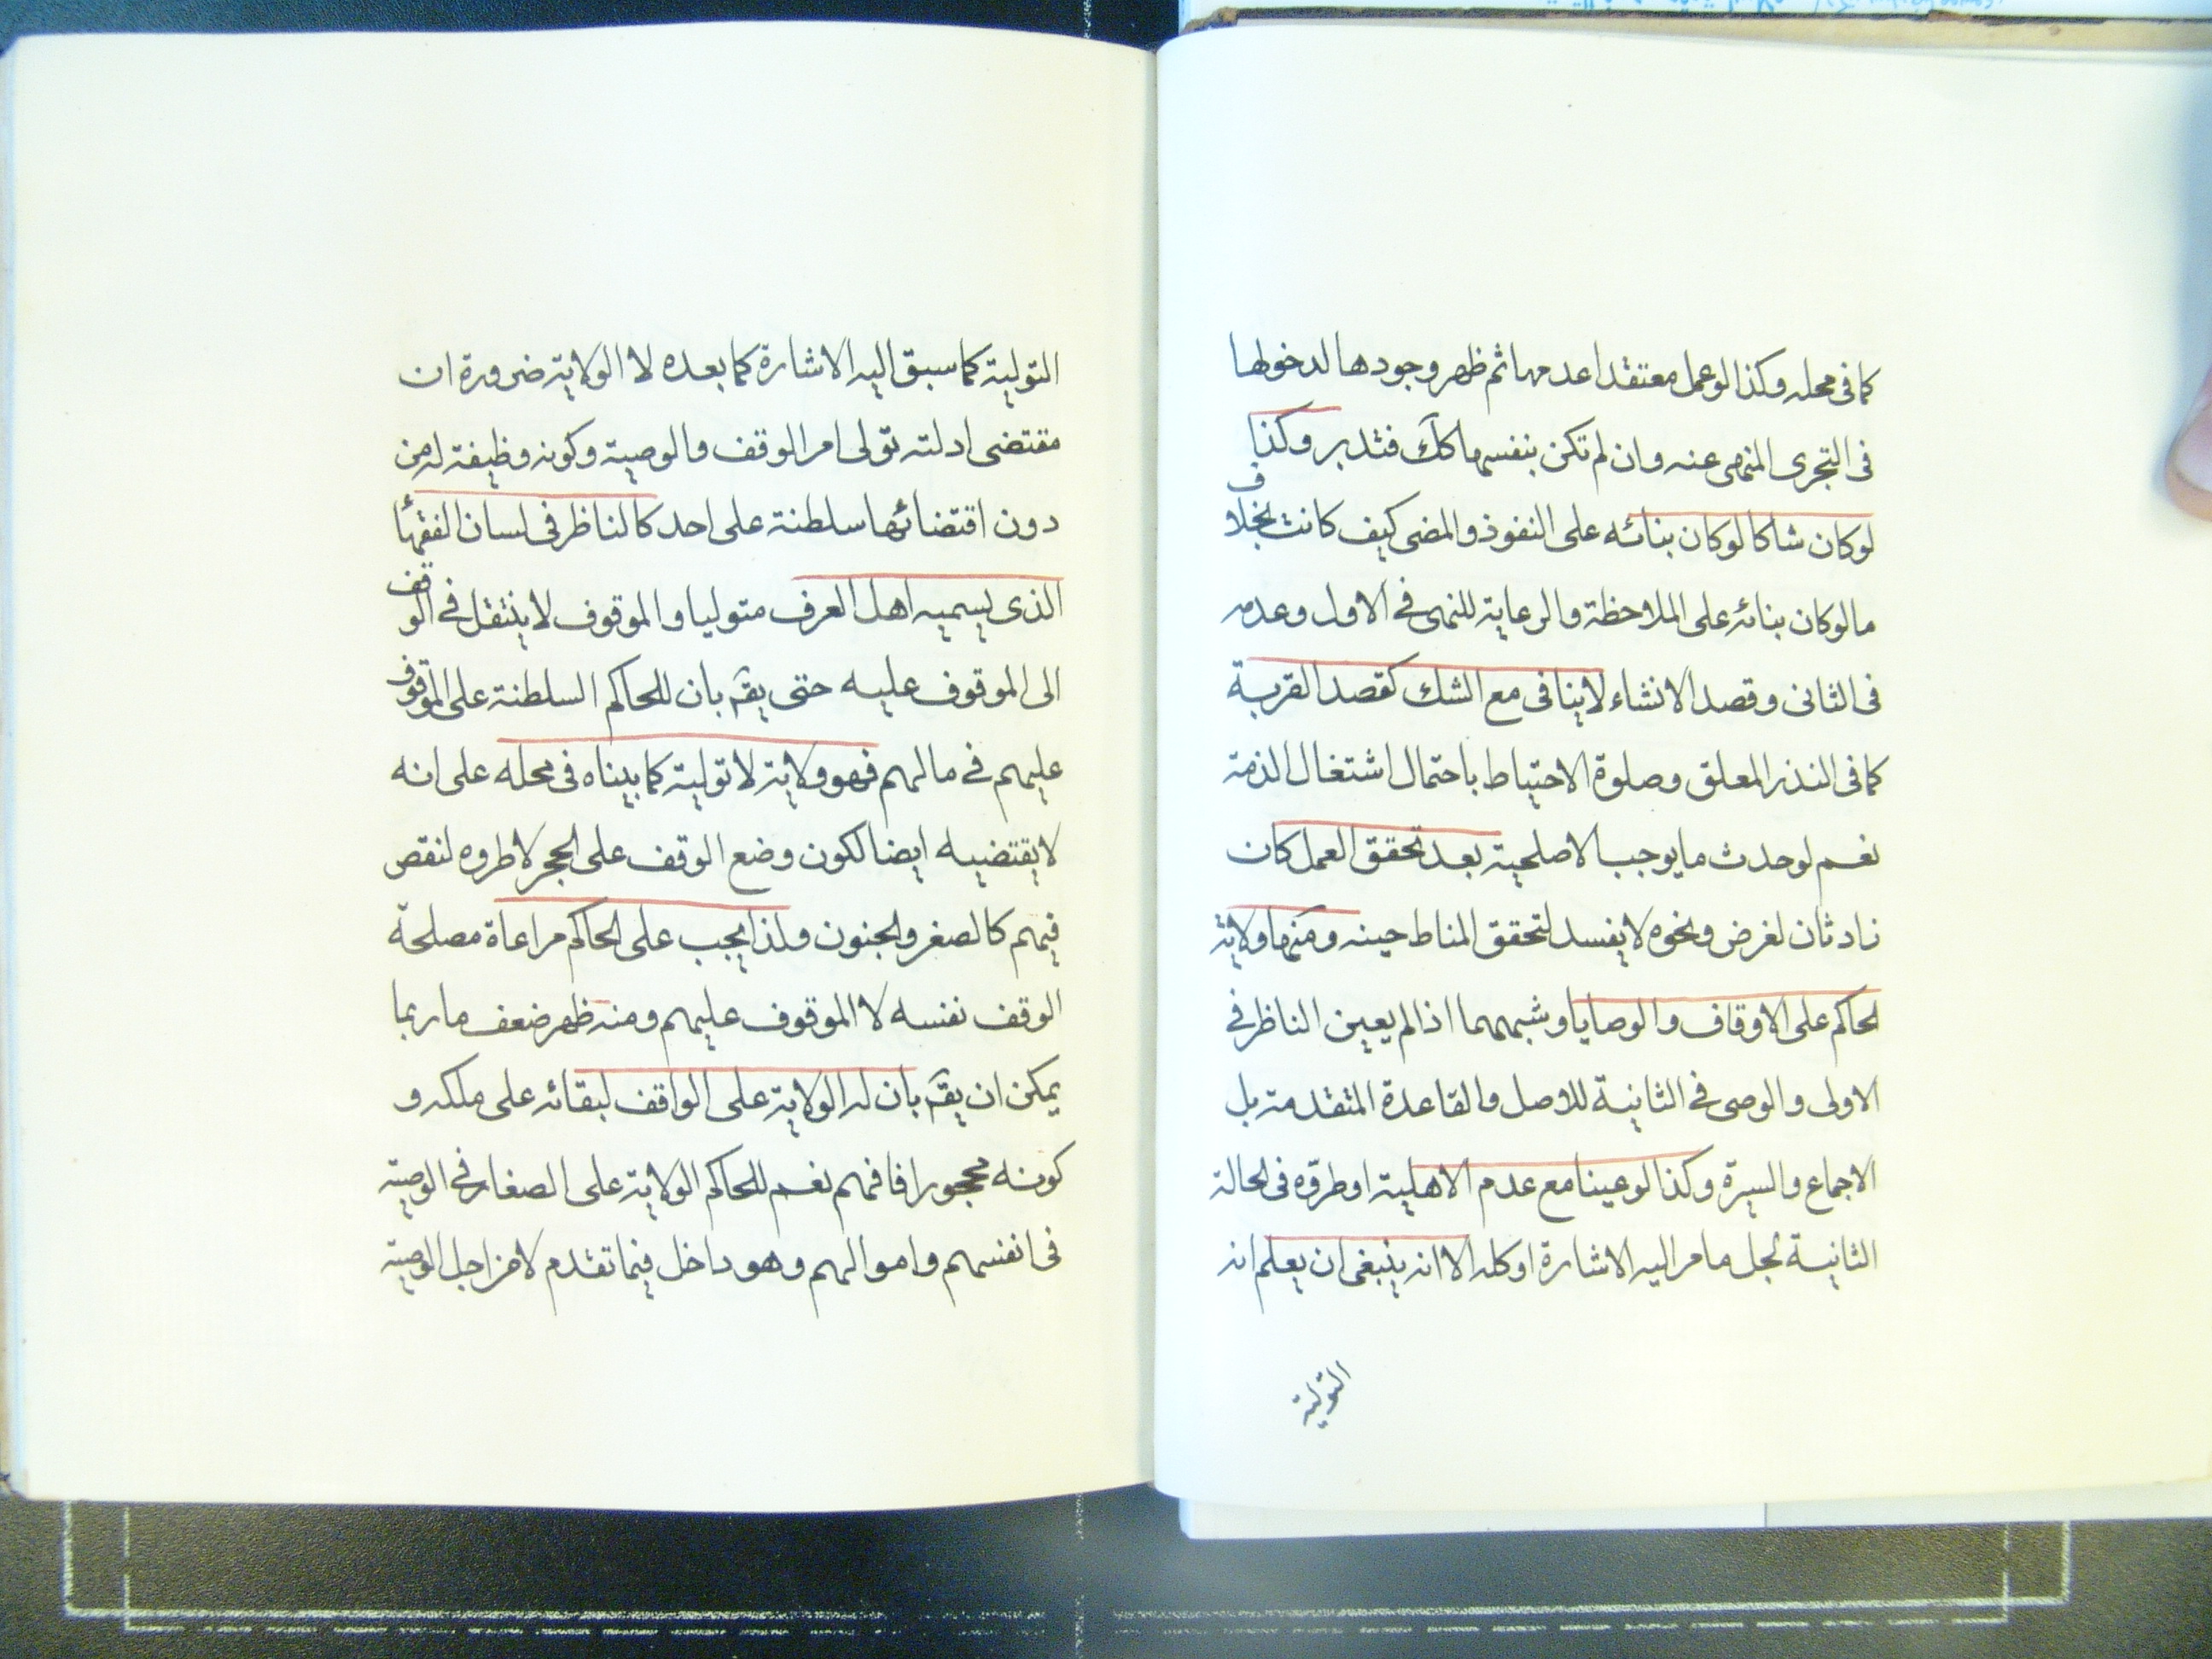 كما فى محله وكذا لو عمل معتقدا عدمها ثم ظهر وجودها لدخولها
فى التجرى المنهى عنه وان لم تكن بنفسها كك فتدبر وكذا
لو كان شاكا لو كان بنائه على النفوذ والمضى كيف كانت بخلاف
ما لو كان بنائه على الملاحظة والرعاية للنهى فى الاول وعدمه
فى الثانى وقصد الانشاء لاينافى مع الشك كقصد القربة
كما فى النذر المعلق وصلوة الاحتياط باحتمال اشتغال الذمة
نعم لو حدث ما يوجب الاصلحية بعد تحقق العمل كان
زاد ثان لغرض ونحوه لا يفسد لتحقق المناط حينه ومنها ولاية
الحاكم على الاوقاف والوصايا وشبههما اذا لم يعين الناظر فى
الاولى والوصى فى الثانية للاصل والقاعدة المتقدمة بل
الاجماع والسيرة وكذا لو عينا مع عدم الاهلية او طروه فى الحالة
الثانية لجل ما مر اليه الاشارة او كله الا انه ينبغى ان يعلم انه
التولية
التولية كما سبق اليه الاشارة كما بعده لا الولاية ضرورة ان
مقتضى ادلته تولى امر الوقف والوصية وكونه وظيفة له من
دون اقتضائها سلطنة على احد كالناظر فى لسان الفقهاء
الذى يسميه اهل العرف متوليا والموقوف لا ينتقل فى الوقف
الى الموقوف عليه حتى يقه بان للحاكم السلطنة على الموقوف
عليهم فى مالهم فهو ولاية لا تولية كما بيناه فى محله على انه
لا يقتضيه ايضا لكون وضع الوقف على الحجر لا طروه لنقص
فيهم كالصغر والجنون ولذا يجب على الحاكم مراعاة مصلحة
الوقف نفسه لا الموقوف عليهم ومنه ظهر ضعف ما ربما
يمكن ان يقه بان له الولاية على الواقف لبقائه على ملكه و
كونه محجورا فافهم نعم للحاكم الولاية على الصغار فى الوصية
فى انفسهم واموالهم وهو داخل فيما تقدم لا من اجل الوصية